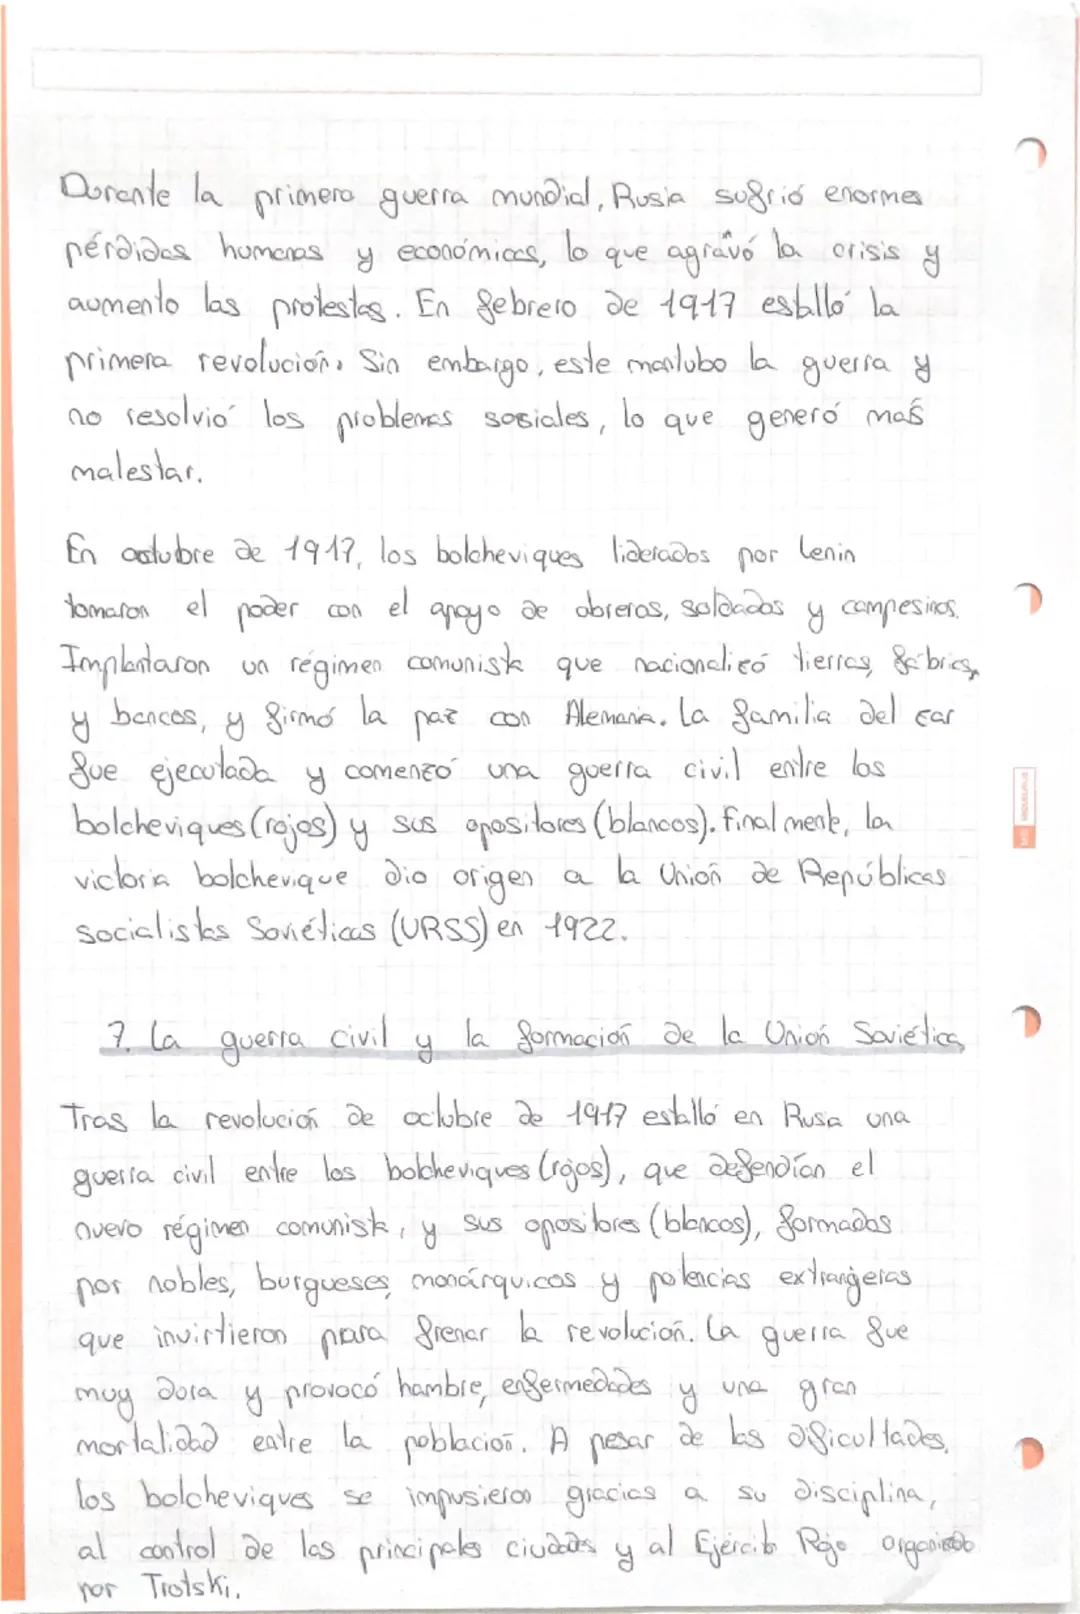 Durante la primera guerra mundial, Rusia sufrió enormes
pérdidas humanas y económicas, lo que agravó la crisis y
aumento las protestas. En febrero de 1917 estalló la
primera revolución. Sin embargo, este mantubo la guerra y
no resolvió los problemas sosiales, lo que generó más
malestar.
En octubre de 1917, los bolcheviques liderados por Lenin
tomaron el poder con el apoyo de obreros, soldados y campesinos.
Implantaron un régimen comunista que nacionalizó tierras, fábricas,
y bancos, y firmó la paz con Alemania. La familia del zar
fue ejecutada y comenzó una guerra civil entre los
bolcheviques (rojos) y sus opositores (blancos). Finalmente, la
victoria bolchevique dio origen a la Unión de Repúblicas
socialistas Soviéticas (URSS) en 1922.
7. La guerra civil y la formación de la Unión Soviética
Tras la revolución de octubre de 1917 estalló en Rusa una
guerra civil entre los bolcheviques (rojos), que defendían el
nuevo régimen comunista, y sus opositores (blancos), formados
por nobles, burgueses, monárquicos y potencias extranjeras
que invirtieron para frenar la revolución. La guerra fue
muy dura y provocó hambre, enfermedades y una gran
mortalidad entre la población. A pesar de las dificultades,
los bolcheviques se impusieron gracias a su disciplina,
al control de las principales ciudades y al Ejército Rojo organizado
por Trotski.